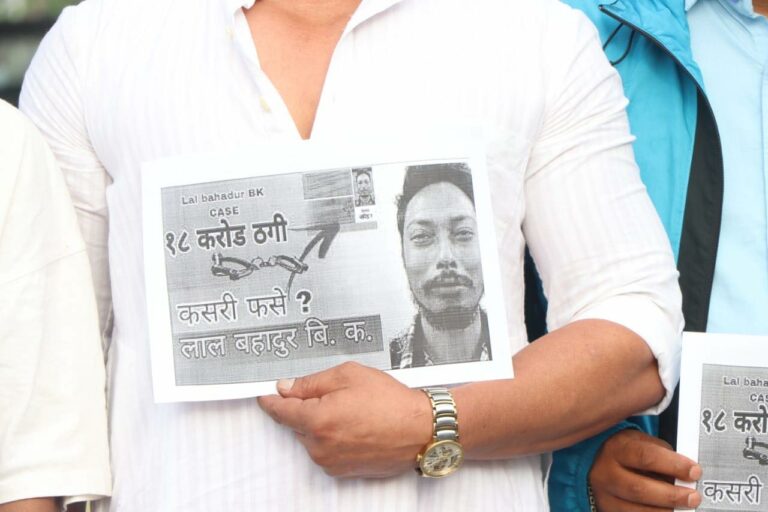 Lal bahadur BK
CASE
१८ करोड ठगी
कसरी फसे ?
लाल बहादुर बि. क.
Lal bahadu
CAS
१८ करो
कसरी